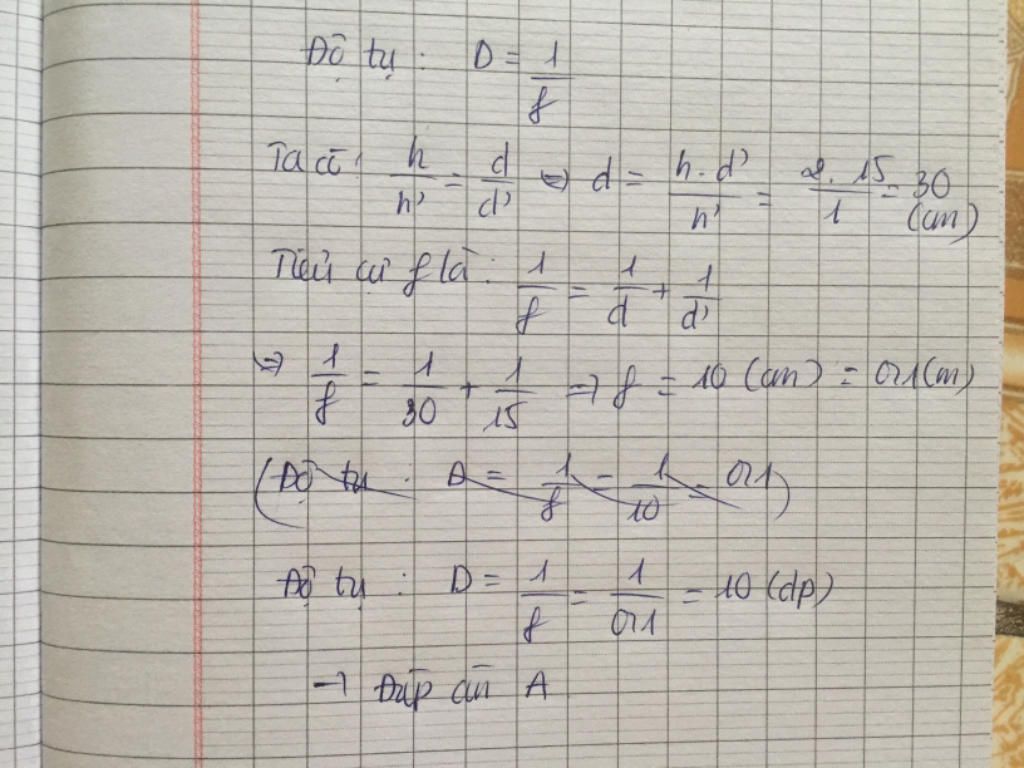 Độ tụ : D = 1/f
Ta có : h/h' = d/d' ⇔ d = h.d'/h' = 2.15/1 = 30 (cm)
Tiêu cự f là : 1/f = 1/d + 1/d'
⇒ 1/f = 1/30 + 1/15 → f = 10 (cm) = 0,1 (m)
(Độ tụ : D = 1/f = 1/10 = 0,1)
Độ tụ : D = 1/f = 1/0,1 = 10 (dp)
→ Đáp án A